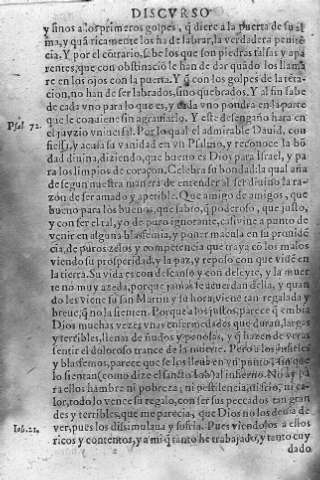 DISCVRSO
y sinos a los primeros golpes, q̃ diere a la puerta de su al
ma, y quã ricamente los ha de labrar, la verdadera peniẽ
cia. Y por el contrario, sabe los que son piedras falsas y apa
rentes, que con obstinaciõ le han de dar quãdo los llama
re en los ojos con la puerta. Y q̃ con los golpes de la tẽta-
cion, no han de ser labrados, sino quebrados. Y al fin sabe
de cada vno para lo que es, y cada vno pondra en la parte
que le conuiene sin agrauiarlo. Y este desengaño hara en
Psal. 72.
el juyzio vniuersal. Por lo qual el admirable Dauid, con
fiessa, y acusa su vanidad en vn Psalmo, y reconoce la bõ
dad diuina, diziendo, que bueno es Dios para Israel, y pa
ra los limpios de coraçon. Celebra su bondad: la qual aña
de segun nuestra manera de entender al ser diuino la ra-
zon de ser amado y apetible. Que amigo de amigos, que
bueno para los buenos, que sabio, q̃ poderoso, que justo,
y con ser el tal, yo de puro ignorante, casi vine a punto de
venir en alguna blasfemia, y poner macula en su prouidẽ
cia, de puros zelos y competencia que traya cõ los malos
viendo su prosperidad, y la paz, y reposo con que viuẽ en
la tierra. Su vida es con descanso y con deleyte, y la muer
te no muy azeda, porque jamas se acuerdan della, y quan
do les viene su san Martin y su hora, viene tan regalada y
breue, q̃ no la sienten. Porque a los justos, parece q̃ embia
Dios muchas vezes vnas enfermedades que durã, largas
y terribles, llenas de ñudos y penosas, y q̃ hazen de veras
sentir el doloroso trance de la muerte. Pero a los
y blasfemos, parece que se los lleua en vn punto, sin que
lo sientan (como dize el sancto Iob) al infierno. No ay pa
ra ellos hambre ni pobreza, ni pestilencia, ni frio, ni ca-
lor, todo lo vence su regalo, con ser sus peccados tan gran
des y terribles, que me parecia, que Dios no los deuia de
Iob. 21.
ver, pues los dissimulaua y sufria. Pues viendolos a ellos
ricos y contentos, y a mi q̃ tanto he trabajado, y tanto cuy
dado